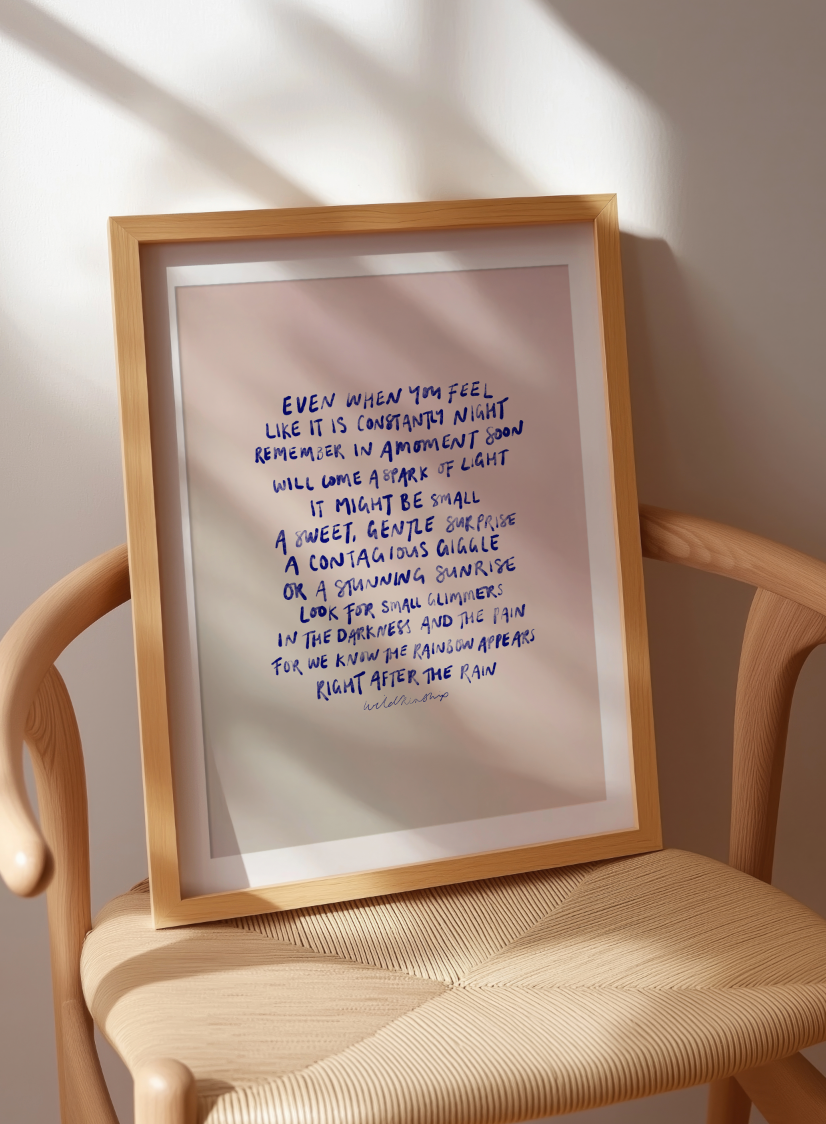 EVEN WHEN YOU FEEL
LIKE IT IS CONSTANTLY NIGHT
REMEMBER IN A MOMENT SOON
WILL COME A SPARK OF LIGHT
IT MIGHT BE SMALL
A SWEET, GENTLE SURPRISE
A CONTAGIOUS GIGGLE
OR A STUNNING SUNRISE
LOOK FOR SMALL GLIMMERS
IN THE DARKNESS AND THE PAIN
FOR WE KNOW THE RAINBOW APPEARS
RIGHT AFTER THE RAIN
wildkinship